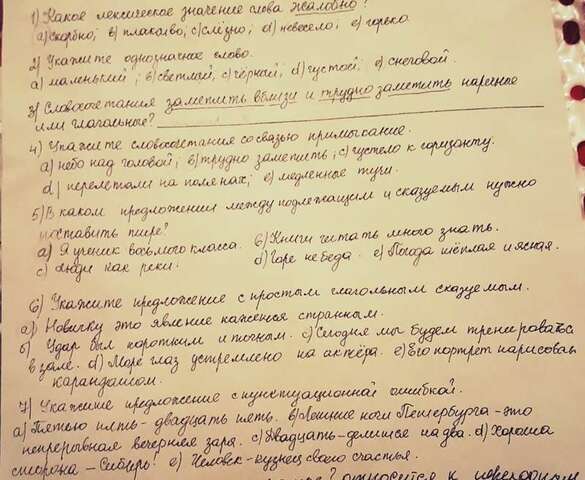 1) Какое лексическое значение слова жалобно?
а) скорбно; в) плаксиво; с) слёзно; d) невесело; е) горько.
2) Укажите однозначное слово.
а) маленький; в) светлый; с) чёрный; d) густой; е) снеговой.
3) Словосочетания заметить вблизи и трудно заметить наречные
или глагольные?
4) Укажите словосочетания со связью примыкание.
а) небо над головой; в) трудно заметить; с) густело к горизонту.
d) перелетали на полянах; е) медленные тучи.
5) В каком предложении между подлежащим и сказуемым нужно
поставить тире?
а) Я ученик восьмого класса. б) Книги читать много знать.
с) Люди как реки. d) Горе не беда. е) Погода тёплая и ясная.
6) Укажите предложение с простым глагольным сказуемым.
а) Новичку это явление кажется странным.
б) Удар был коротким и точным. с) Сегодня мы будем тренироваться
в зале. d) Море глаз устремлено на актёра. е) Его портрет нарисован
карандашом.
7) Укажите предложение с пунктуационной ошибкой?
а) Пятью пять - двадцать пять. в) Летние ночи Петербурга - это
непрерывная вечерняя заря. с) Двадцать - делится на два. d) Хороша
сторона - Сибирь! е) Человек - кузнец своего счастья.
относится к